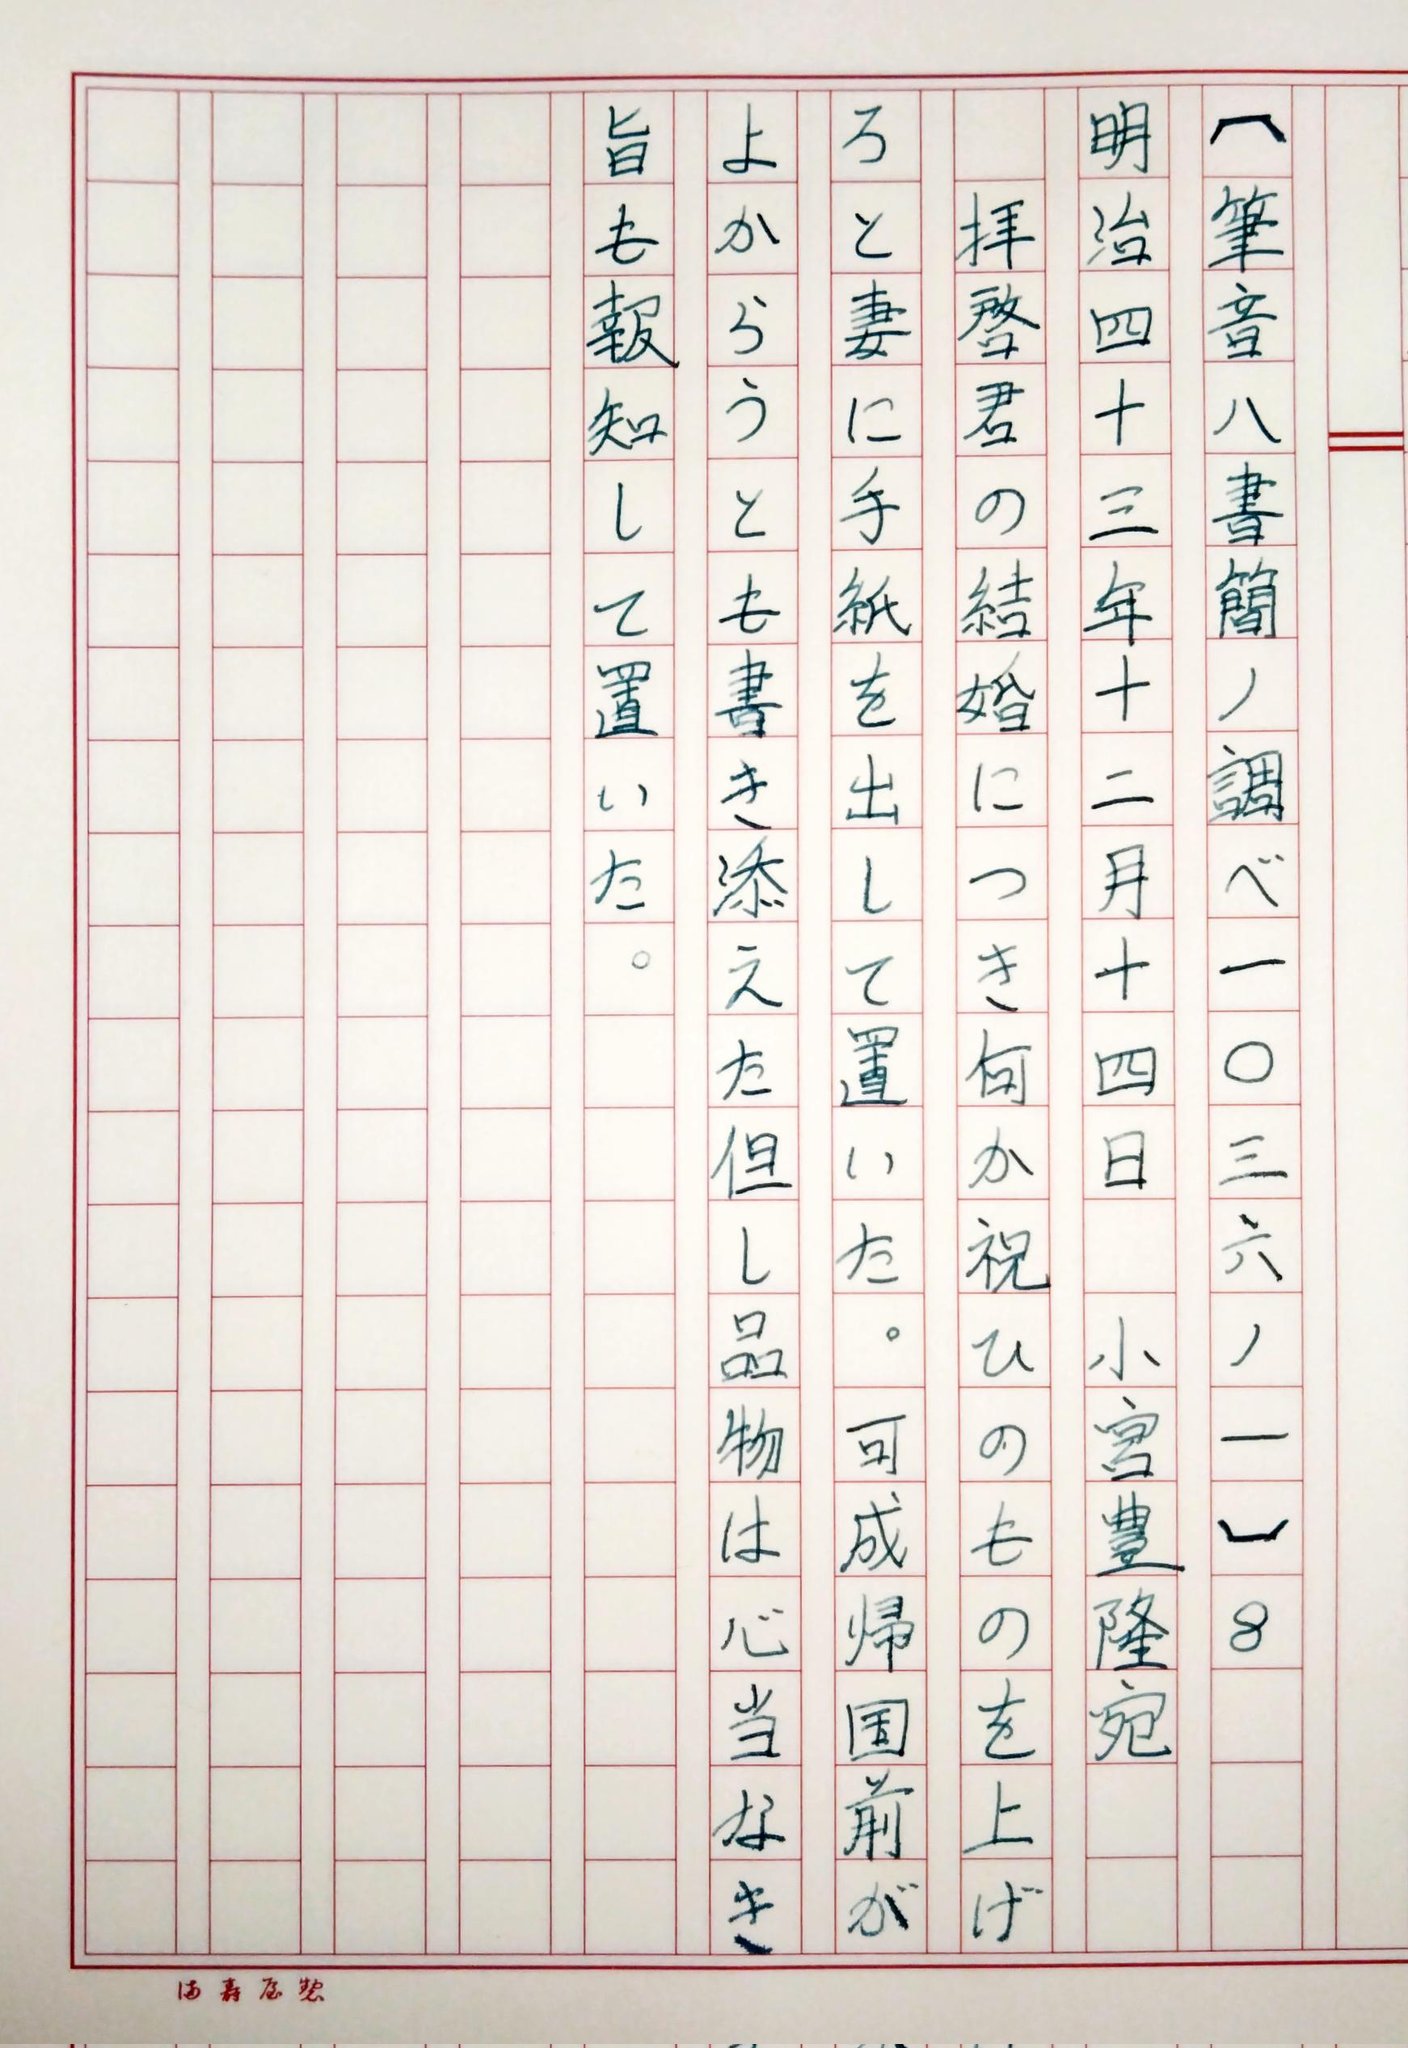 (筆音八書簡ノ調べ一〇三六ノ一)8
明治四十三年十二月十四日　小宮豊隆宛
　拝啓君の結婚につき何か祝ひのものを上げ
ろと妻に手紙を出して置いた。可成帰国前が
よからうとも書き添えた但し品物は心当なき
旨も報知して置いた。
満寿屋製